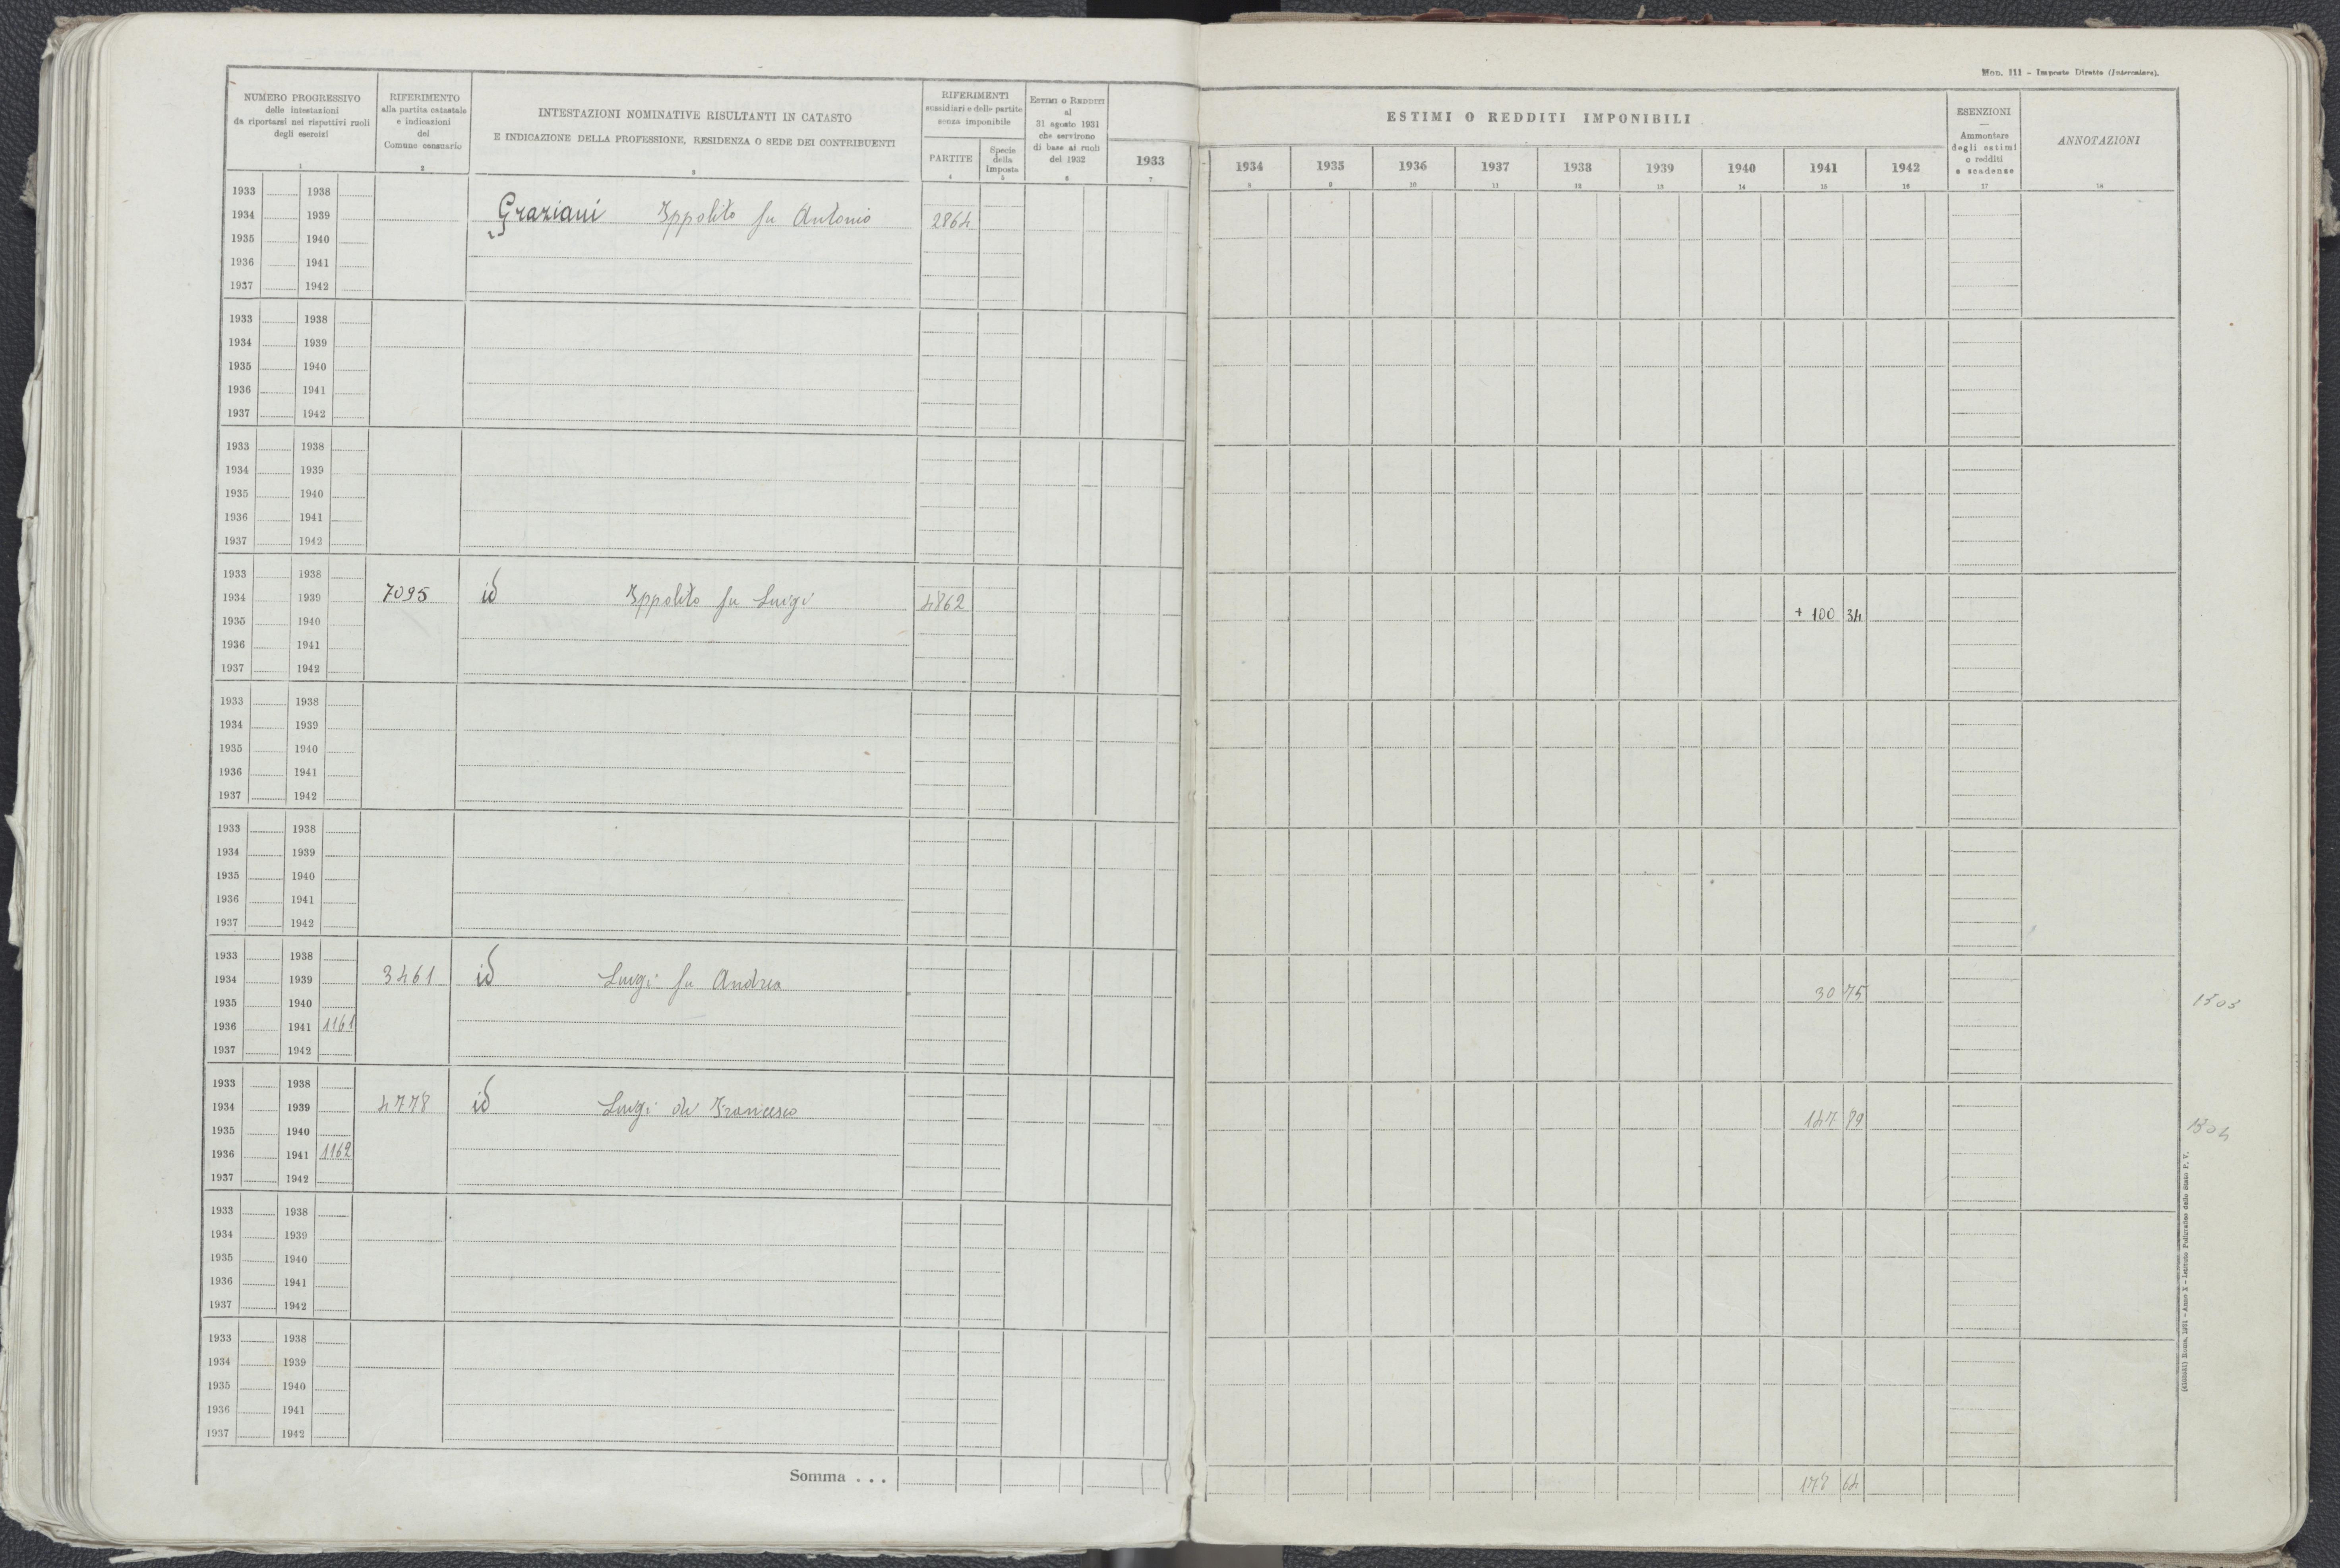 Mod. 111 - Imposte Dirette (Intercalare).
NUMERO PROGRESSIVO
delle intestazioni
da riportarsi nei rispettivi ruoli
degli esercizi
1
RIFERIMENTO
alla partita catastale
e indicazioni
del
Comune censuario
2
INTESTAZIONI NOMINATIVE RISULTANTI IN CATASTO
E INDICAZIONE DELLA PROFESSIONE, RESIDENZA O SEDE DEI CONTRIBUENTI
3
RIFERIMENTI
sussidiari e delle partite
senza imponibile
PARTITE
4
Specie
della
Imposta
5
ESTIMI O REDDITI
al
31 agosto 1931
che servirono
di base ai ruoli
del 1932
6
ESTIMI O REDDITI IMPONIBILI
1933 1934 1935 1936 1937 1938 1939 1940 1941 1942
7 8 9 10 11 12 13 14 15 16
ESENZIONI
—
Ammontare
degli estimi
o redditi
e scadenze
17
ANNOTAZIONI
18
1933 1938
1934 1939 Graziani Ippolito fu Antonio 2864
1935 1940
1936 1941
1937 1942
1933 1938
1934 1939
1935 1940
1936 1941
1937 1942
1933 1938
1934 1939
1935 1940
1936 1941
1937 1942
1933 1938
1934 1939 7095 id Ippolito fu Luigi 4862 + 100 34
1935 1940
1936 1941
1937 1942
1933 1938
1934 1939
1935 1940
1936 1941
1937 1942
1933 1938
1934 1939
1935 1940
1936 1941
1937 1942
1933 1938
1934 1939 3461 id Luigi fu Andrea 30 75 1303
1935 1940
1936 1941 1161
1937 1942
1933 1938
1934 1939 4778 id Luigi di Francesco 147 89 1304
1935 1940
1936 1941 1162
1937 1942
1933 1938
1934 1939
1935 1940
1936 1941
1937 1942
1933 1938
1934 1939
1935 1940
1936 1941
1937 1942
Somma . . . 178 64
Roma, 1931 - Anno X - Istituto Poligrafico dello Stato P. V.